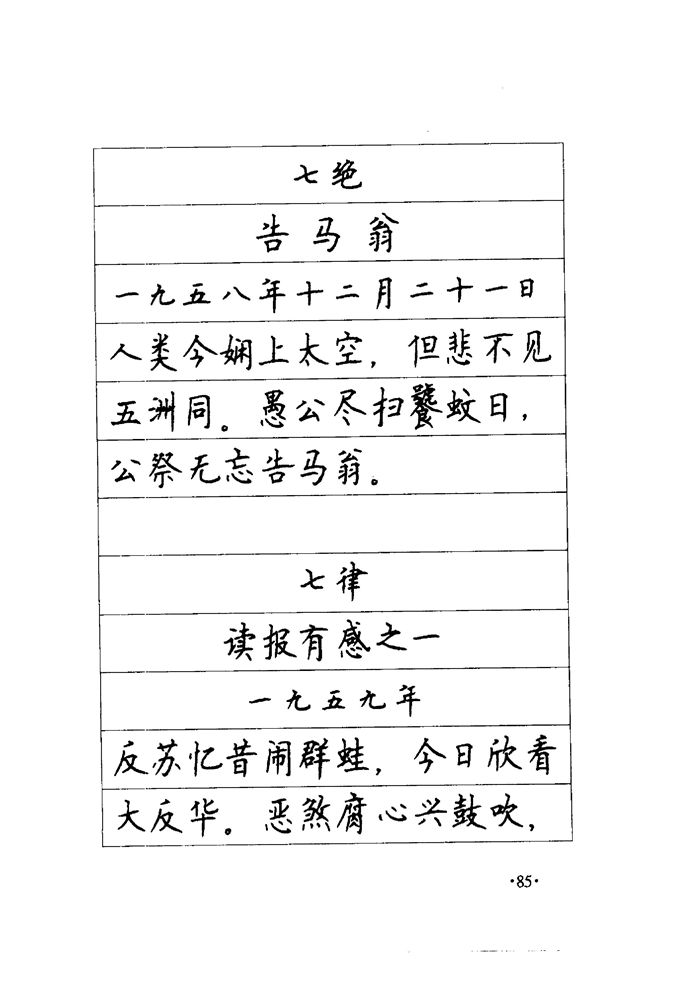 七绝
告马翁
一九五八年十二月二十一日
人类今娴上太空，但悲不见
五洲同。愚公尽扫饕蚊日，
公祭无忘告马翁。
七律
读报有感之一
一九五九年
反苏忆昔闹群蛙，今日欣看
大反华。恶煞腐心兴鼓吹，
·85·